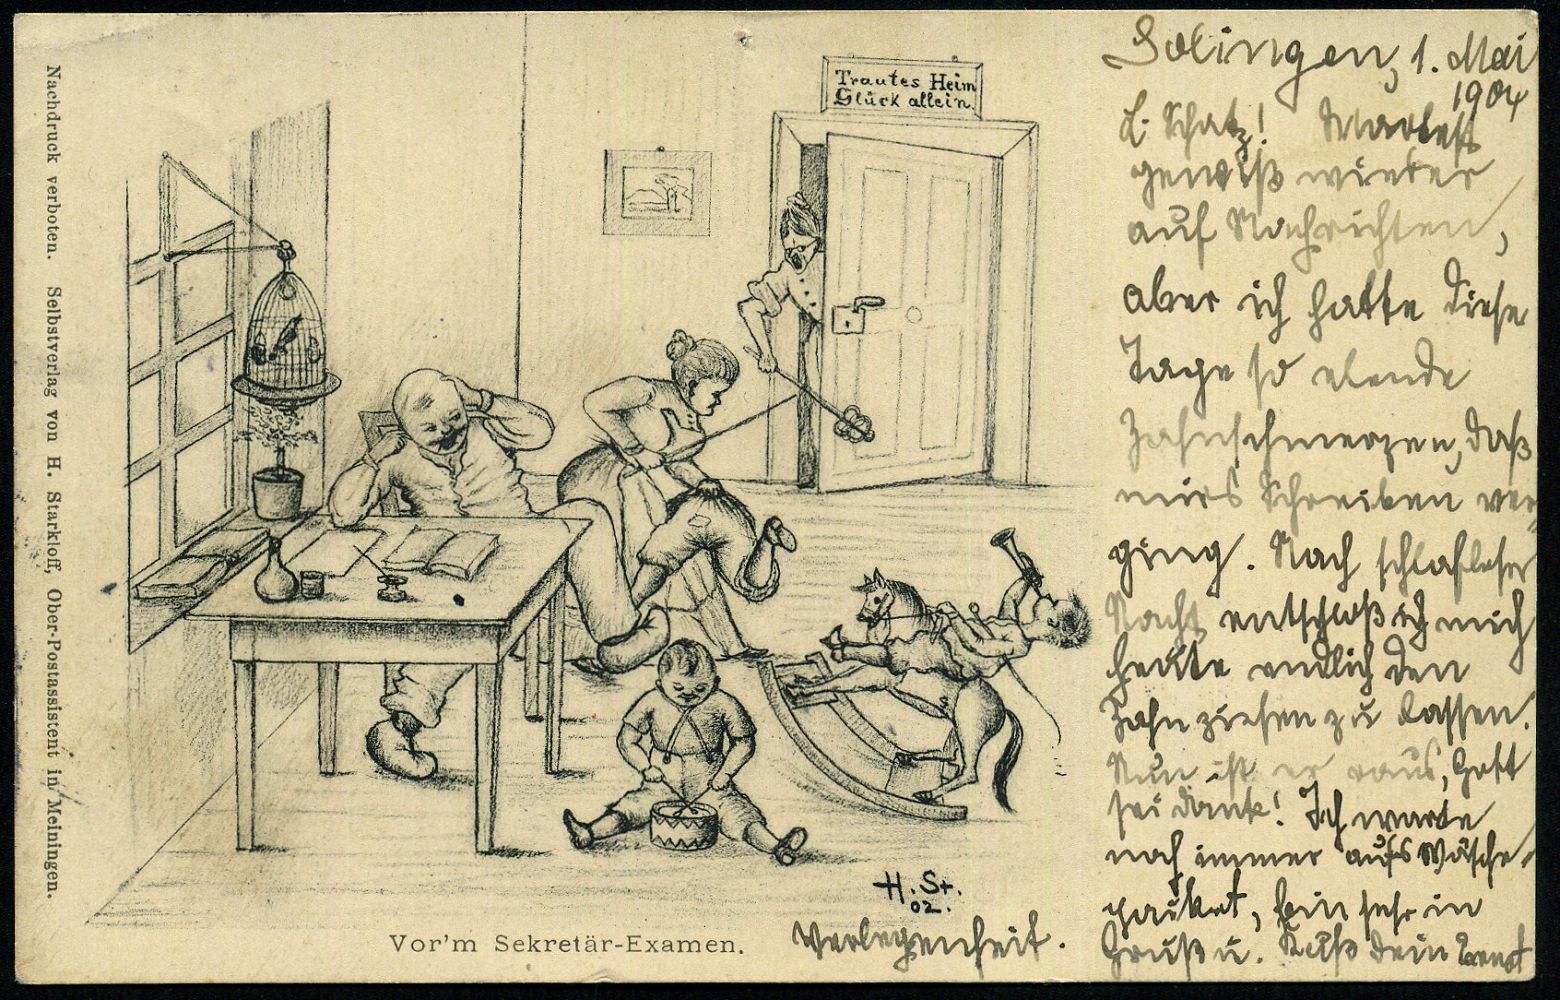 Nachdruck verboten. Selbstverlag von H. Starkloff, Ober-Postassistent in Meiningen.
Trautes Heim
Glück allein.
H. St.
02.
Vor'm Sekretär-Examen.
Solingen, 1. Mai
1904
L. Schatz! Wartest
gewiß wieder
auf Nachrichten,
aber ich hatte diese
Tage so elende
Zahnschmerzen, daß
mirs Schreiben ver-
ging. Nach schlafloser
Nacht entschloß ich mich
heute endlich den
Zahn ziehen zu lassen.
Nun ist er raus, Gott
sei dank! Ich warte
noch immer aufs Wäsche-
paket, bin sehr in
Verlegenheit.
Gruß u. Kuß dein Ernst